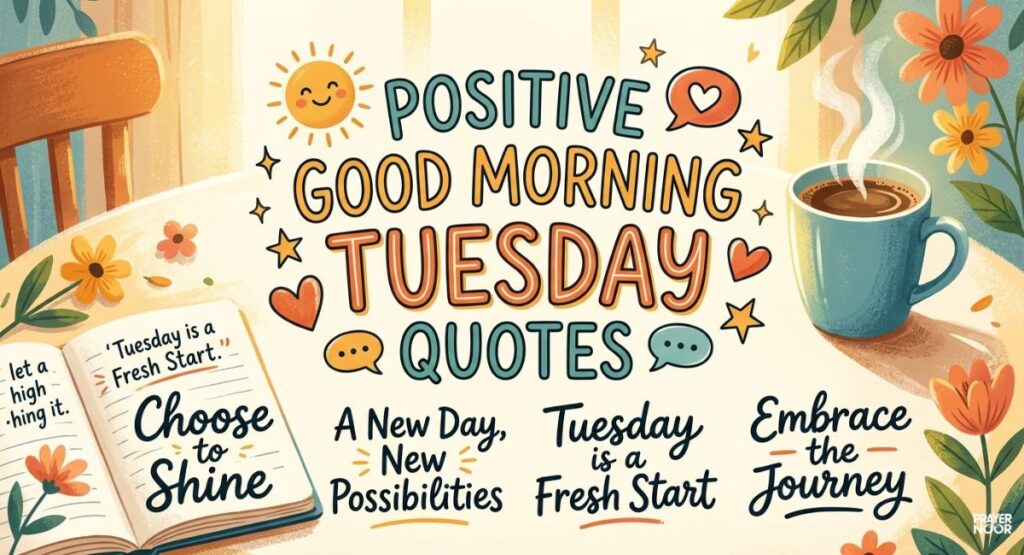 POSITIVE
GOOD MORNING
TUESDAY
QUOTES
let a
high
hing it.
'Tuesday is a
Fresh Start."
Choose
to
Shine
A New Day,
New
Possibilities
Tuesday
is a
Fresh Start
Embrace
the
Journey
PRAYER
NOOR